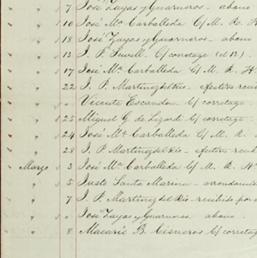 " " 7 José Zayas y Guarneros - abono
" " 10 José Ma. Carballeda C/ M. R. H.
" " 18 José Zayas y Guarneros - abono
" " 13 J. P. Sewell. C/ corretage (d 12)
" " 17 José Ma. Carballeda C/ M. R. H.
" " 22 J. P. Martinez del Rio - efectivo recibi
" " " Vicente Escandon C/ corretage
" " 23 Miguel G. de Lizardi C/ corretage
" " 24 José Ma. Carballeda C/ M. R.
" " 28 J. P. Martinez del Rio - efectivo reci
" Marzo 3 José Ma. Carballeda C/ M. R. H
" " 5 Justo Santa Marina - arrendamie
" " 7 J. P. Martinez del Rio - recibido por
" " " José Zayas y Guarneros abono
" " 8 Macario B. Cisneros C/ corretage